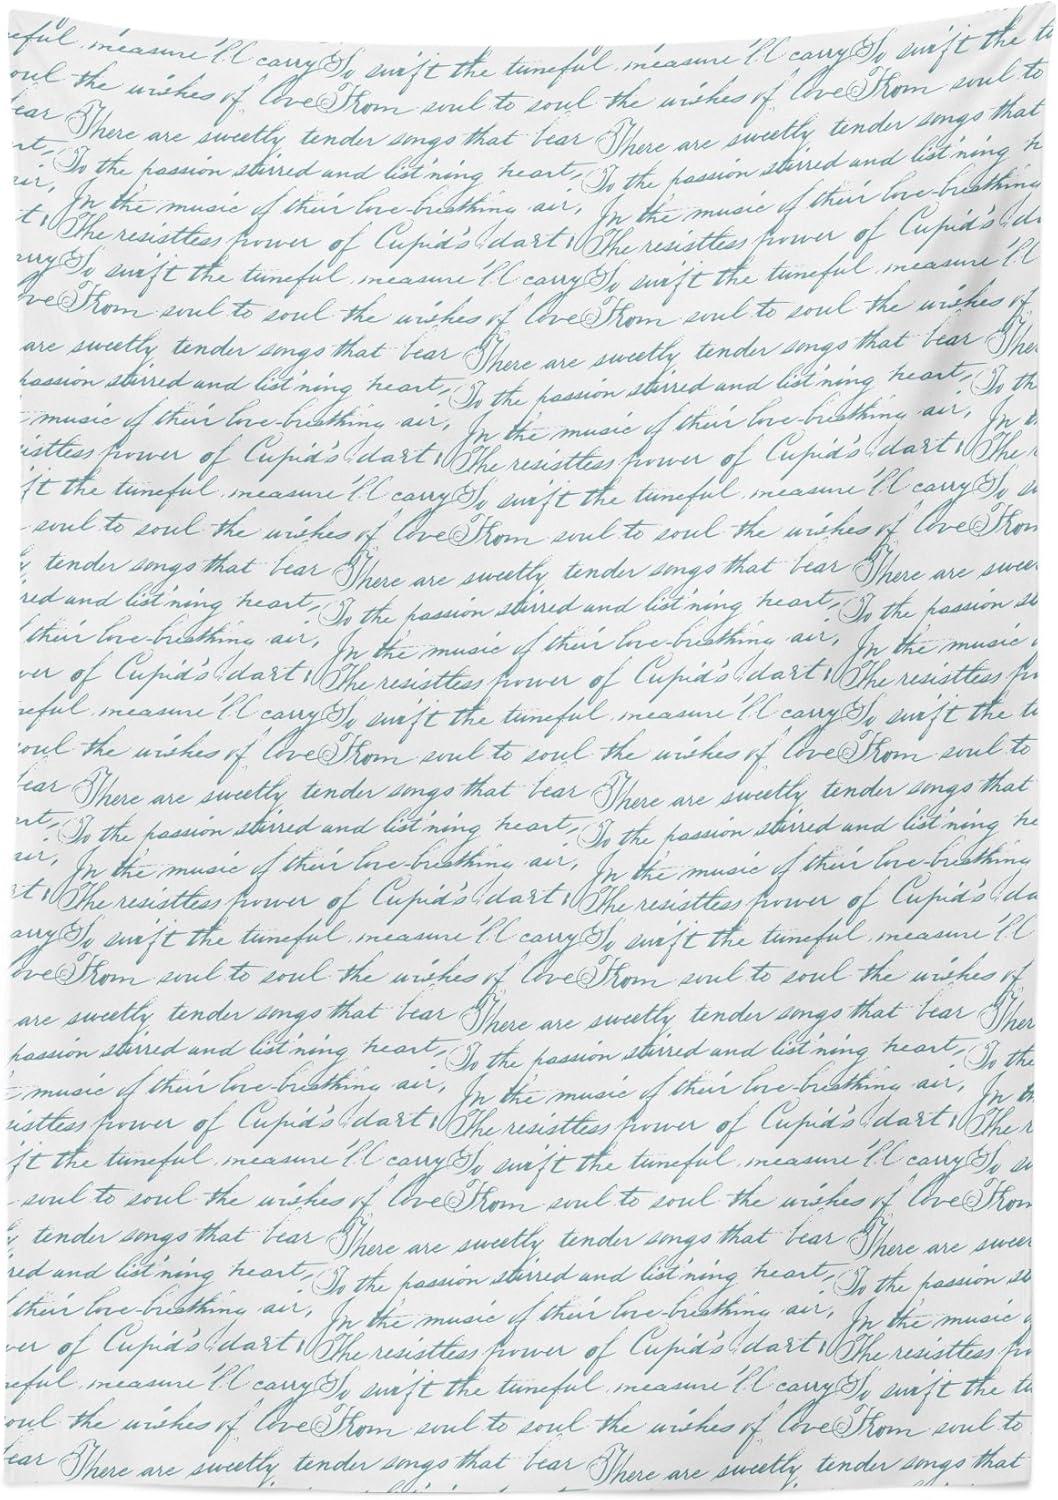 eful measure 'll carry So swift the tuneful measure 'll carry So swift the tu
oul the wishes of Love From soul to soul the wishes of Love From soul to
bear There are sweetly tender songs that bear There are sweetly tender songs that
rt, To the passion stirred and list'ning heart, To the passion stirred and list'ning h
air, In the music of their love-breathing air, In the music of their love-breathing
t! The resistless power of Cupid's dart! The resistless power of Cupid's da
arry So swift the tuneful measure 'll carry So swift the tuneful measure 'll
ove From soul to soul the wishes of Love From soul to soul the wishes of
are sweetly tender songs that bear There are sweetly tender songs that bear Ther
passion stirred and list'ning heart, To the passion stirred and list'ning heart, To th
music of their love-breathing air, In the music of their love-breathing air, In t
sistless power of Cupid's dart! The resistless power of Cupid's dart! The r
ift the tuneful measure 'll carry So swift the tuneful measure 'll carry So sw
soul to soul the wishes of Love From soul to soul the wishes of Love From
y tender songs that bear There are sweetly tender songs that bear There are swee
red and list'ning heart, To the passion stirred and list'ning heart, To the passion st
their love-breathing air, In the music of their love-breathing air, In the music
wer of Cupid's dart! The resistless power of Cupid's dart! The resistless po
neful measure 'll carry So swift the tuneful measure 'll carry So swift the tu
soul the wishes of Love From soul to soul the wishes of Love From soul to
bear There are sweetly tender songs that bear There are sweetly tender songs that
art, To the passion stirred and list'ning heart, To the passion stirred and list'ning he
air, In the music of their love-breathing air, In the music of their love-breathing
rt! The resistless power of Cupid's dart! The resistless power of Cupid's da
arry So swift the tuneful measure 'll carry So swift the tuneful measure 'll
ove From soul to soul the wishes of Love From soul to soul the wishes of
are sweetly tender songs that bear There are sweetly tender songs that bear Ther
passion stirred and list'ning heart, To the passion stirred and list'ning heart, To the
music of their love-breathing air, In the music of their love-breathing air, In th
sistless power of Cupid's dart! The resistless power of Cupid's dart! The r
ift the tuneful measure 'll carry So swift the tuneful measure 'll carry So sw
soul to soul the wishes of Love From soul to soul the wishes of Love From
y tender songs that bear There are sweetly tender songs that bear There are sweet
red and list'ning heart, To the passion stirred and list'ning heart, To the passion st
their love-breathing air, In the music of their love-breathing air, In the music
wer of Cupid's dart! The resistless power of Cupid's dart! The resistless po
neful measure 'll carry So swift the tuneful measure 'll carry So swift the tu
oul the wishes of Love From soul to soul the wishes of Love From soul to
bear There are sweetly tender songs that bear There are sweetly tender songs that